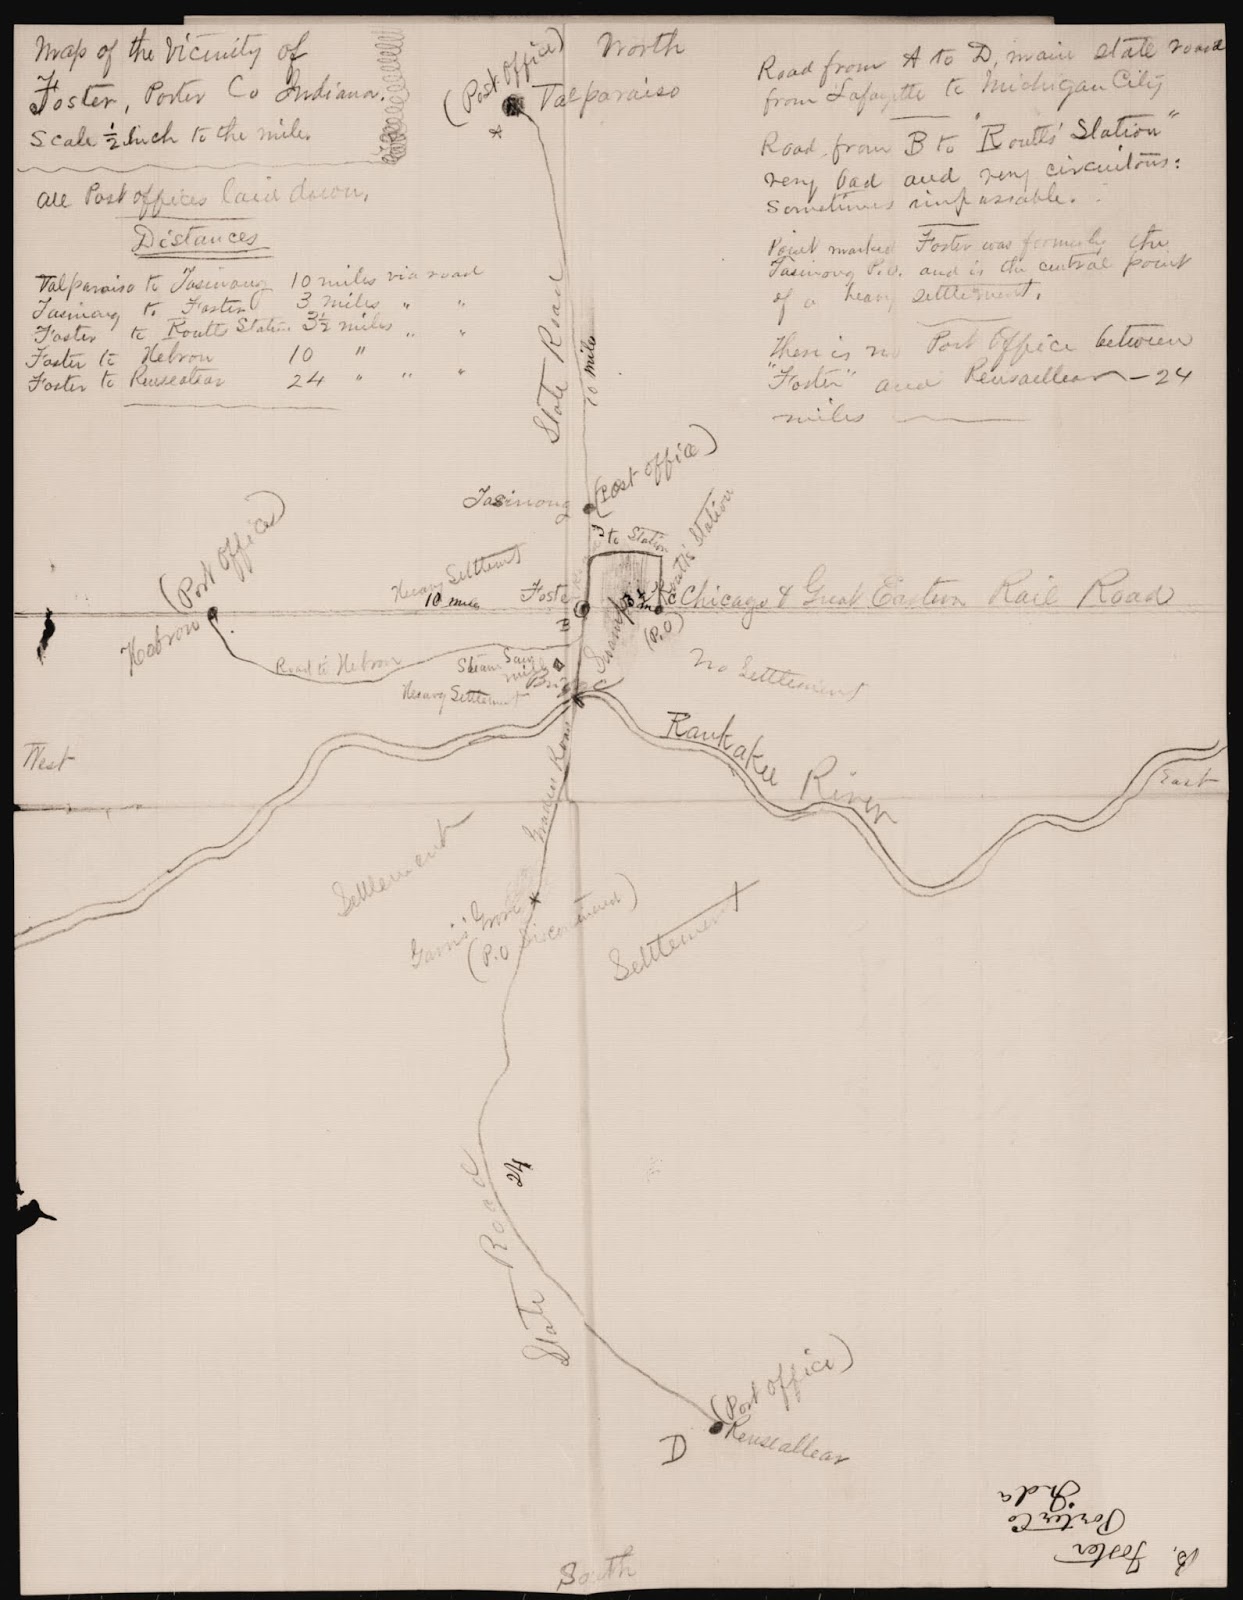 Map of the Vicinity of
Foster, Porter Co Indiana.
Scale ½ inch to the mile.
All Post offices laid down.
Distances
Valparaiso to Tasinong 10 miles via road
Tasinong to Foster 3 miles " "
Foster to Routts Station 3½ miles " "
Foster to Hebron 10 "
Foster to Renseallear 24 " " "
North
(Post Office)
Valparaiso
Road from A to D, main state road
from Lafayette to Michigan City
Road from B to "Routts' Station"
very bad and very circuitous:
Sometimes impassable.
Point marked Foster was formerly the
Tasinong P.O. and is the central point
of a heavy settlement.
There is no Post Office between
"Foster" and Rensaellear — 24
miles
State Road
10 miles
(Post Office)
Tasinong
to Station
Routts Station
(Post Office)
Hebron
Heavy Settlement
10 miles
Foster
B
Swamp
3½ m
C
(P.O)
Chicago & Great Eastern Rail Road
Road to Hebron
Steam Saw
mill
Heavy Settlement
Bridge
No Settlement
Kankakee River
West
East
Settlement
Grove
(P.O Discontinued)
Settlement
State Road
24
(Post Office)
Renseallear
D
South
B.
Foster
Porter Co
Inda